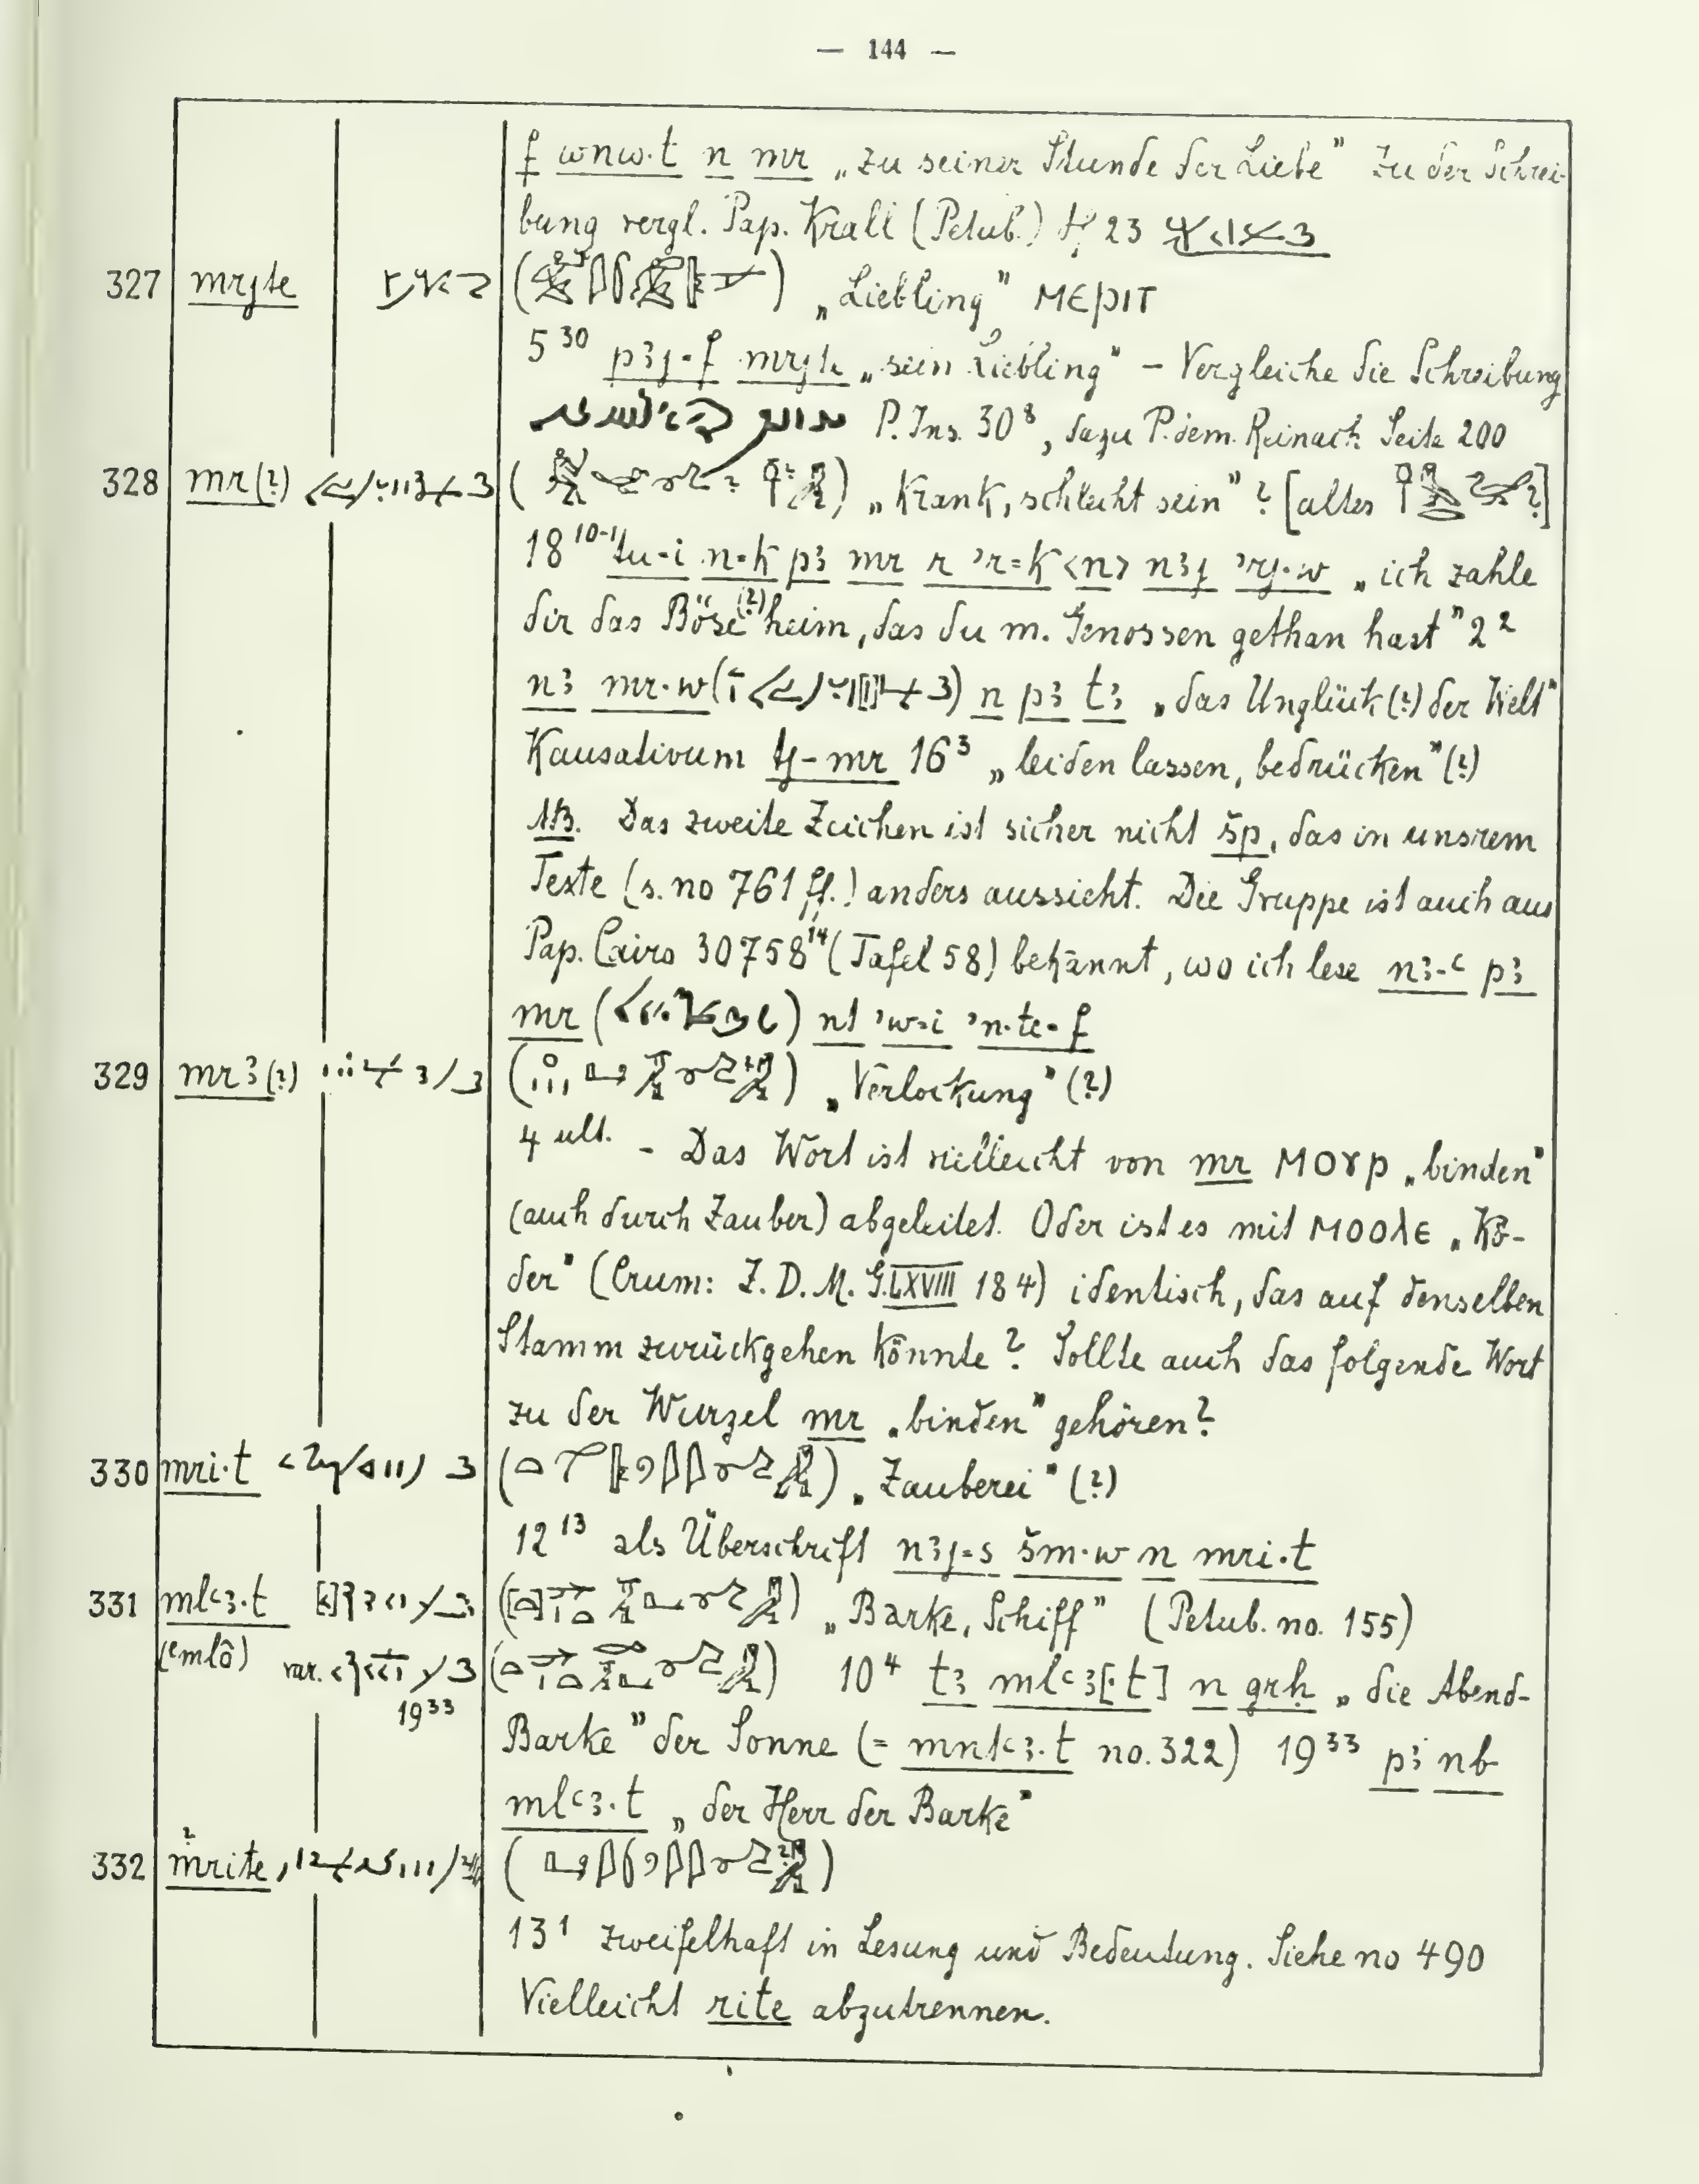 — 144 —
f wnw·t n mr „zu seiner Stunde der Liebe” Zu der Schrei-
bung vergl. Pap. Krall (Petub.) 23
327 mryte ( ) „Liebling” ⲘⲈⲢⲒⲦ
5³⁰ pꜣj-f mryte „sein Liebling” – Vergleiche die Schreibung
P. Ins. 30⁸, dazu P. dem. Reinach Seite 200
328 mr(?) ( ) „Krank, schlecht sein”? [altes ?]
18¹⁰⁻¹ tu-i n-k pꜣ mr r ʾr=k <n> nꜣj ʾrj·w „ich zahle
dir das Böse(?) heim, das du m. Genossen gethan hast” 2²
nꜣ mr·w ( ) n pꜣ tꜣ „das Unglück(?) der Welt”
Kausativum tj-mr 16³ „leiden lassen, bedrücken”(?)
NB. Das zweite Zeichen ist sicher nicht šp, das in unsrem
Texte (s. no 761 ff.) anders aussieht. Die Gruppe ist auch aus
Pap. Cairo 30758¹⁴ (Tafel 58) bekannt, wo ich lese nꜣ-ꜥ pꜣ
mr ( ) nt ʾw-i ʾn·te-f
329 mrꜣ(?) ( ) „Verlockung”(?)
4 ult. – Das Wort ist vielleicht von mr ⲘⲞⲨⲢ „binden”
(auch durch Zauber) abgeleitet. Oder ist es mit ⲘⲞⲞⲖⲈ „Kö-
der” (Crum: Z. D. M. G. LXVIII 184) identisch, das auf denselben
Stamm zurückgehen könnte? Sollte auch das folgende Wort
zu der Wurzel mr „binden” gehören?
330 mri·t ( ) „Zauberei”(?)
12¹³ als Überschrift nꜣj=s šm·w n mri·t
331 mlꜥꜣ·t ( ) „Barke, Schiff” (Petub. no. 155)
(ᵉmlô) var. 19³³ ( ) 10⁴ tꜣ mlꜥꜣ[·t] n grḥ „die Abend-
Barke” der Sonne (= mnkꜥꜣ·t no. 322) 19³³ pꜣ nb
mlꜥꜣ·t „der Herr der Barke”
332 m?rite ( )
13¹ zweifelhaft in Lesung und Bedeutung. Siehe no 490
Vielleicht rite abzutrennen.